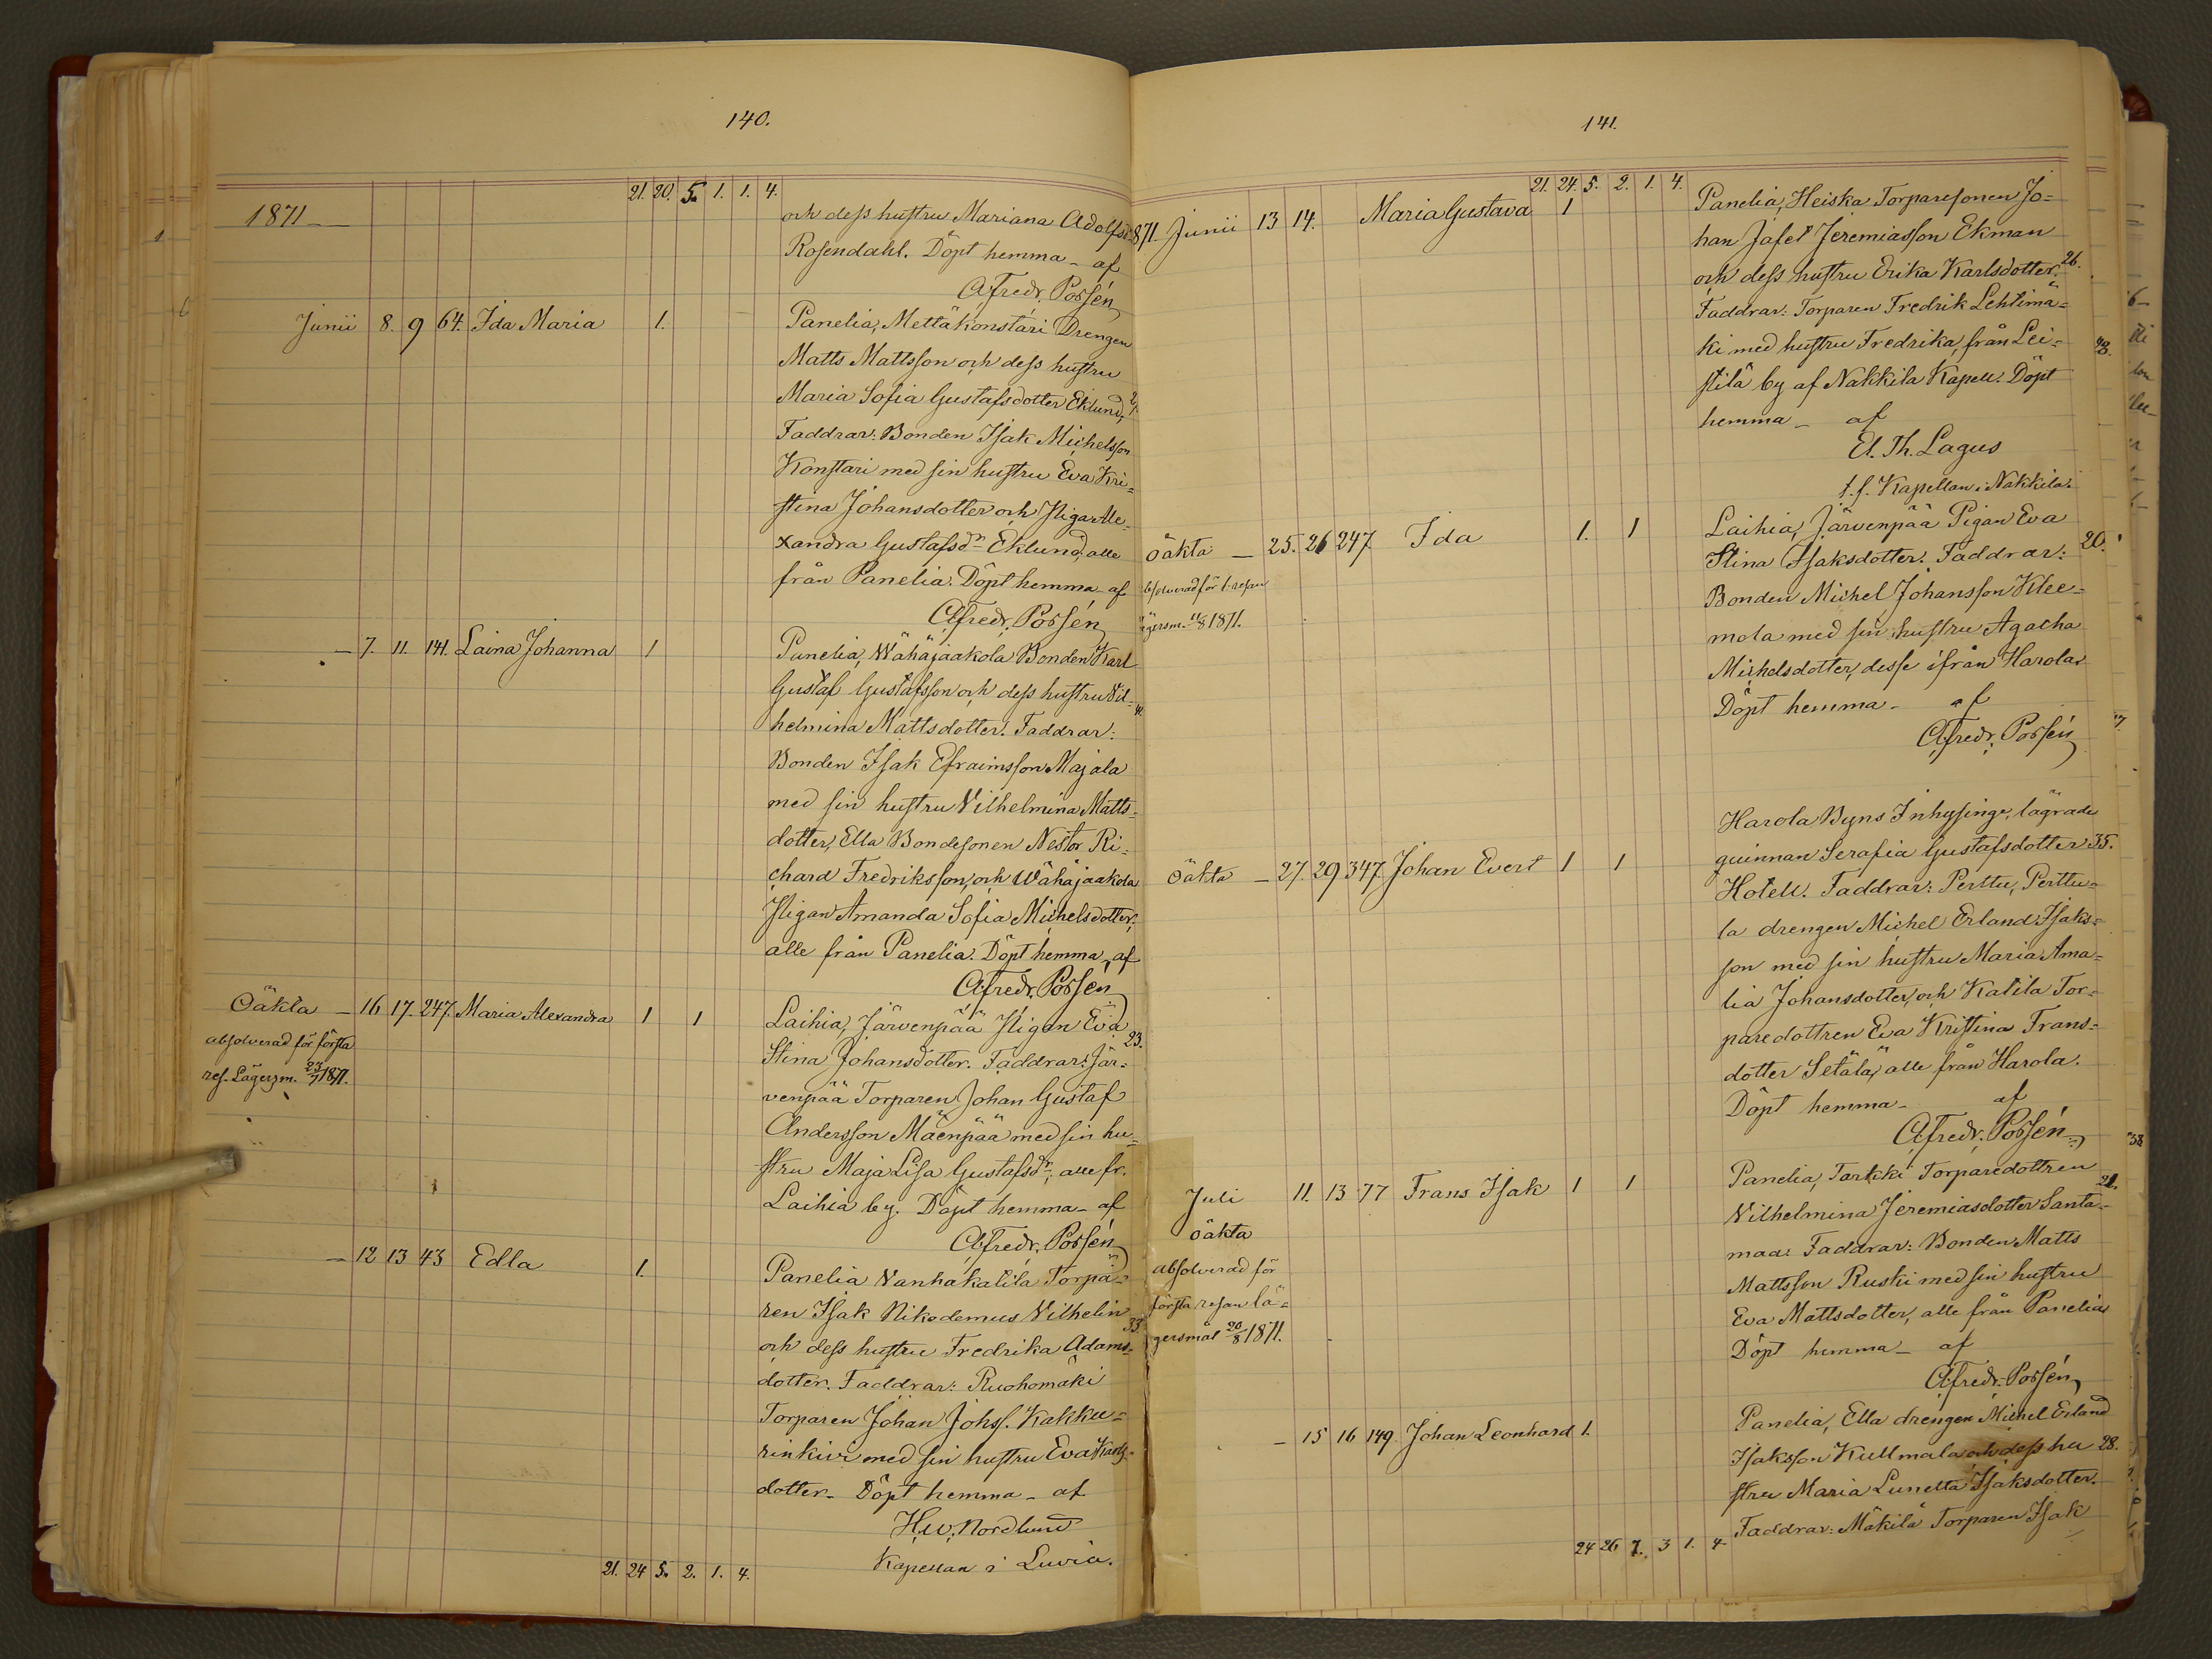 140.
21. 20. 5. 1. 1. 4.
1871
och dess hustru Mariana Adolfsd.
Rosendahl. Döpt hemma - af
Afredr. Possén
Junii 8. 9 64. Ida Maria 1. Panelia, Mettäkonstari Drengen
Matts Mattsson och dess hustru
Maria Sofia Gustafsdotter Eklund,
Faddrar: Bonden Isak Michelsson
Konstari med sin hustru Eva Kri=
stina Johansdotter och Pigan Ale=
xandra Gustafsdr Eklund, alle
från Panelia. Döpt hemma af
Afredr. Possén
- 7. 11. 141. Laina Johanna 1 Panelia, Wähäjaakola Bonden Karl
Gustaf Gustafsson och dess hustru Vil=
helmina Mattsdotter. Faddrar:
Bonden Isak Efraimsson Majala
med sin hustru Vilhelmina Matts=
dotter, Ella Bondesonen Nestor Ri=
chard Fredriksson, och Wähäjaakola
Pigan Amanda Sofia Michelsdotter,
alle från Panelia. Döpt hemma, af
Afredr. Possén
Oäkta - 16 17. 247. Maria Alexandra 1 1 Laihia, Järvenpää Pigan Eva 23.
absolverad för första
res. Lägersm. 23/7 1871.
Stina Johansdotter. Faddrar: Jär=
venpää Torparen Johan Gustaf
Andersson Mäenpää med sin hu=
stru Maja Lisa Gustafsdr, alle fr.
Laihia by. Döpt hemma - af
Afredr. Possén
- 12 13 43 Edla 1. Panelia Vanhakatila Torpa=
ren Isak Nikodemus Vilhelin 33.
och dess hustru Fredrika Adams=
dotter. Faddrar: Ruohomäki
Torparen Johan Johss. Kakku=
rinkivi med sin hustru Eva Karls=
dotter. Döpt hemma - af
H.W. Nordlund
Kapellan i Luvia.
21. 24 5. 2. 1. 4.
141.
21. 24. 5. 2. 1. 4.
871. Junii 13 14. Maria Gustava 1 Panelia, Heiska Torparesonen Jo=
han Jafet Jeremiasson Ekman
och dess hustru Erika Karlsdotter. 26.
Faddrar: Torparen Fredrik Lehtimä=
ki med hustru Fredrika, från Lei=
stilä by af Nakkila Kapell. Döpt
hemma - af
El. Th. Lagus
t.f. Kapellan i Nakkila.
Oäkta - 25. 26 247. Ida 1. 1 Laihia, Järvenpää Pigan Eva
Stina Isaksdotter. Faddrar: 20.
Bonden Michel Johansson Klee=
mola med sin hustru Agatha
Michelsdotter, desse ifrån Harola.
Döpt hemma - af
Afredr. Possén
ägersm. 11/8 1871.
Oäkta - 27. 29 347. Johan Evert 1 1 Harola Byns Inhysinge, lägrade
quinnan Serafia Gustafsdotter 35.
Hotell. Faddrar: Perttu, Perttu=
la drengen Michel Erland Isaks=
son med sin hustru Maria Ama=
lia Johansdotter, och Katila Tor=
paredottren Eva Kristina Frans=
dotter Setälä, alle från Harola.
Döpt hemma - af
Afredr. Possén
Juli 11. 13 77 Frans Isak 1 1 Panelia, Tarkki Torparedottren
Oäkta
absolverad för
första resan lä=
gersmål 20/8 1871.
Vilhelmina Jeremiasdotter Santa= 21.
maa. Faddrar: Bonden Matts
Mattsson Ruski med sin hustru
Eva Mattsdotter, alle från Panelia
Döpt hemma - af
Afredr. Possén
- 15 16 149. Johan Leonhard 1. Panelia, Ella drengen Michel Erland
Isaksson Kullmala och dess hu 28.
stru Maria Lunetta Isaksdotter.
Faddrar: Mäkilä Torparen Isak
24 26 7. 3 1. 4